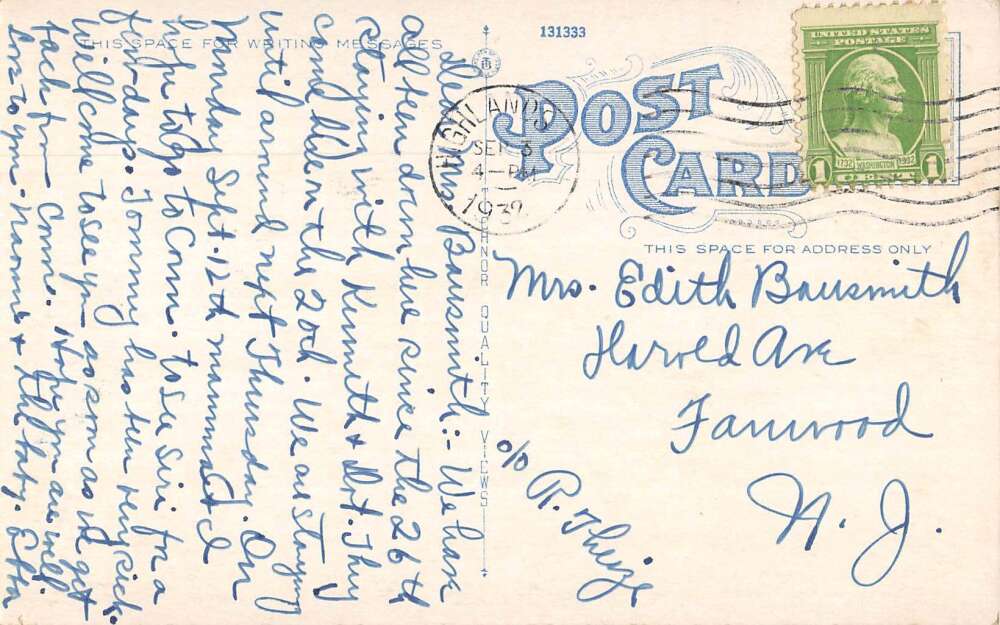 THIS SPACE FOR WRITING MESSAGES
Dear Mrs. Bausmith:- We have
all been down here since the 26th
staying with Kenneth & Dot. They
came down the 20th. We are staying
until around next Thursday. On
Monday Sept. 12th mamma & I
hope to go to Conn. to see Siri for a
few days. Tommy has been very sick.
Will come to see you as soon as we get
back from Conn. Hope you are well.
Love to you. Naomi & the baby. Ebba
GOVERNOR QUALITY VIEWS
131333
POST CARD
HIGHLANDS
SEP 3
4-PM
1932
UNITED STATES
POSTAGE
1732 WASHINGTON 1932
1 CENT 1
THIS SPACE FOR ADDRESS ONLY
Mrs. Edith Bausmith
Harold Ave
Fanwood
N. J.
c/o R. Theize